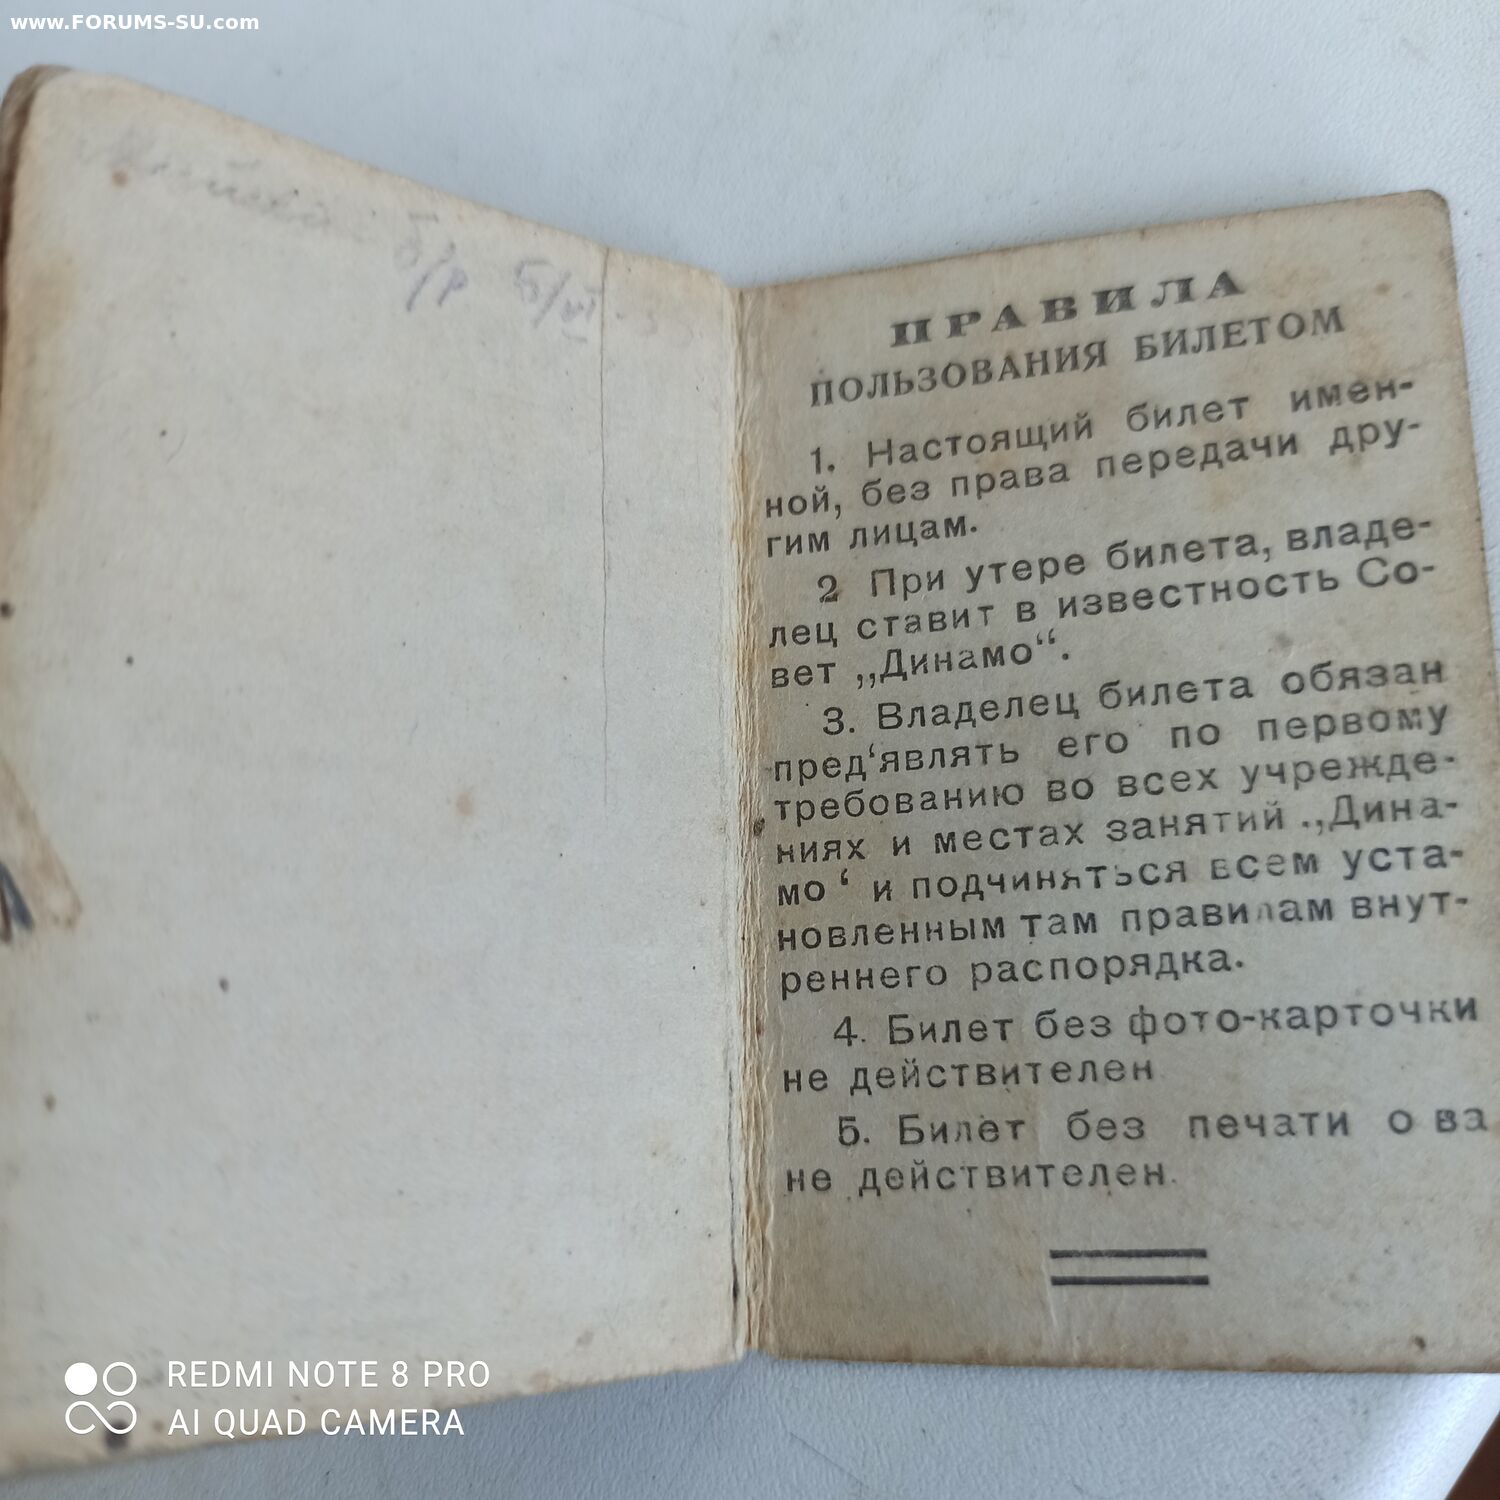 www.FORUMS-SU.com
б/р 5/VI
ПРАВИЛА
ПОЛЬЗОВАНИЯ БИЛЕТОМ
1. Настоящий билет имен-
ной, без права передачи дру-
гим лицам.
2 При утере билета, владе-
лец ставит в известность Со-
вет „Динамо“.
3. Владелец билета обязан
пред‘являть его по первому
требованию во всех учрежде-
ниях и местах занятий „Дина-
мо‘ и подчиняться всем уста-
новленным там правилам внут-
реннего распорядка.
4. Билет без фото-карточки
не действителен
5. Билет без печати о ва
не действителен.
REDMI NOTE 8 PRO
AI QUAD CAMERA